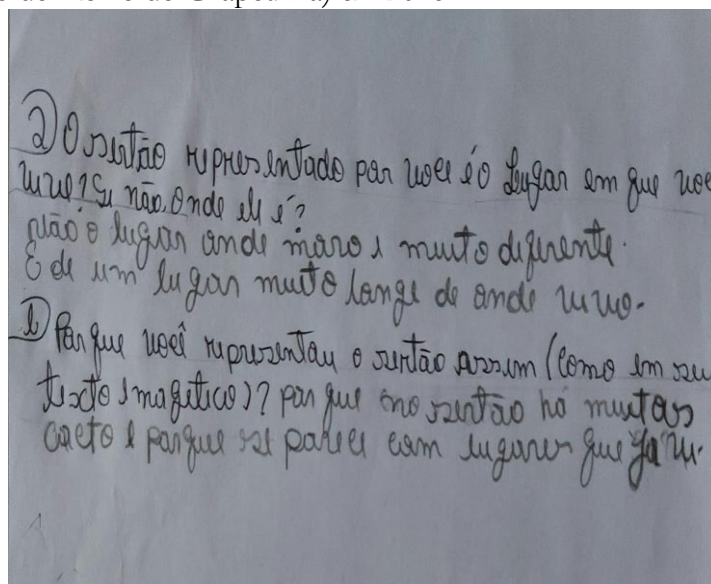 a) O sertão representado por você é o lugar em que você
vive? Se não, onde ele é?
Não o lugar onde moro é muito diferente.
É de um lugar muito longe de onde vivo.
b) Por que você representou o sertão assim (como em seu
texto imagético)? por que no sertão há muitos
cacto e porque se parece com lugares que já vi.